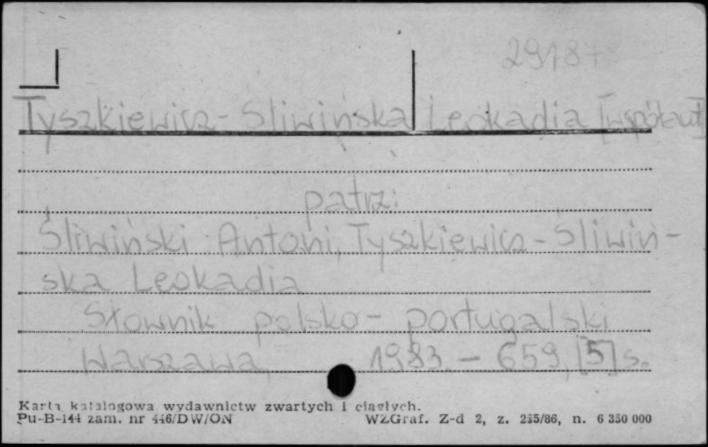 29187
Tyszkiewicz-Śliwińska Leokadia [współaut]
patrz:
Śliwiński Antoni, Tyszkiewicz-Śliwiń-
ska Leokadia
Słownik polsko-portugalski
Warszawa, 1983. - 659, [5] s.
Karta katalogowa wydawnictw zwartych i ciągłych.
Pu-B-144 zam. nr 446/DW/ON WZGraf. Z-d 2, z. 255/86, n. 6 350 000